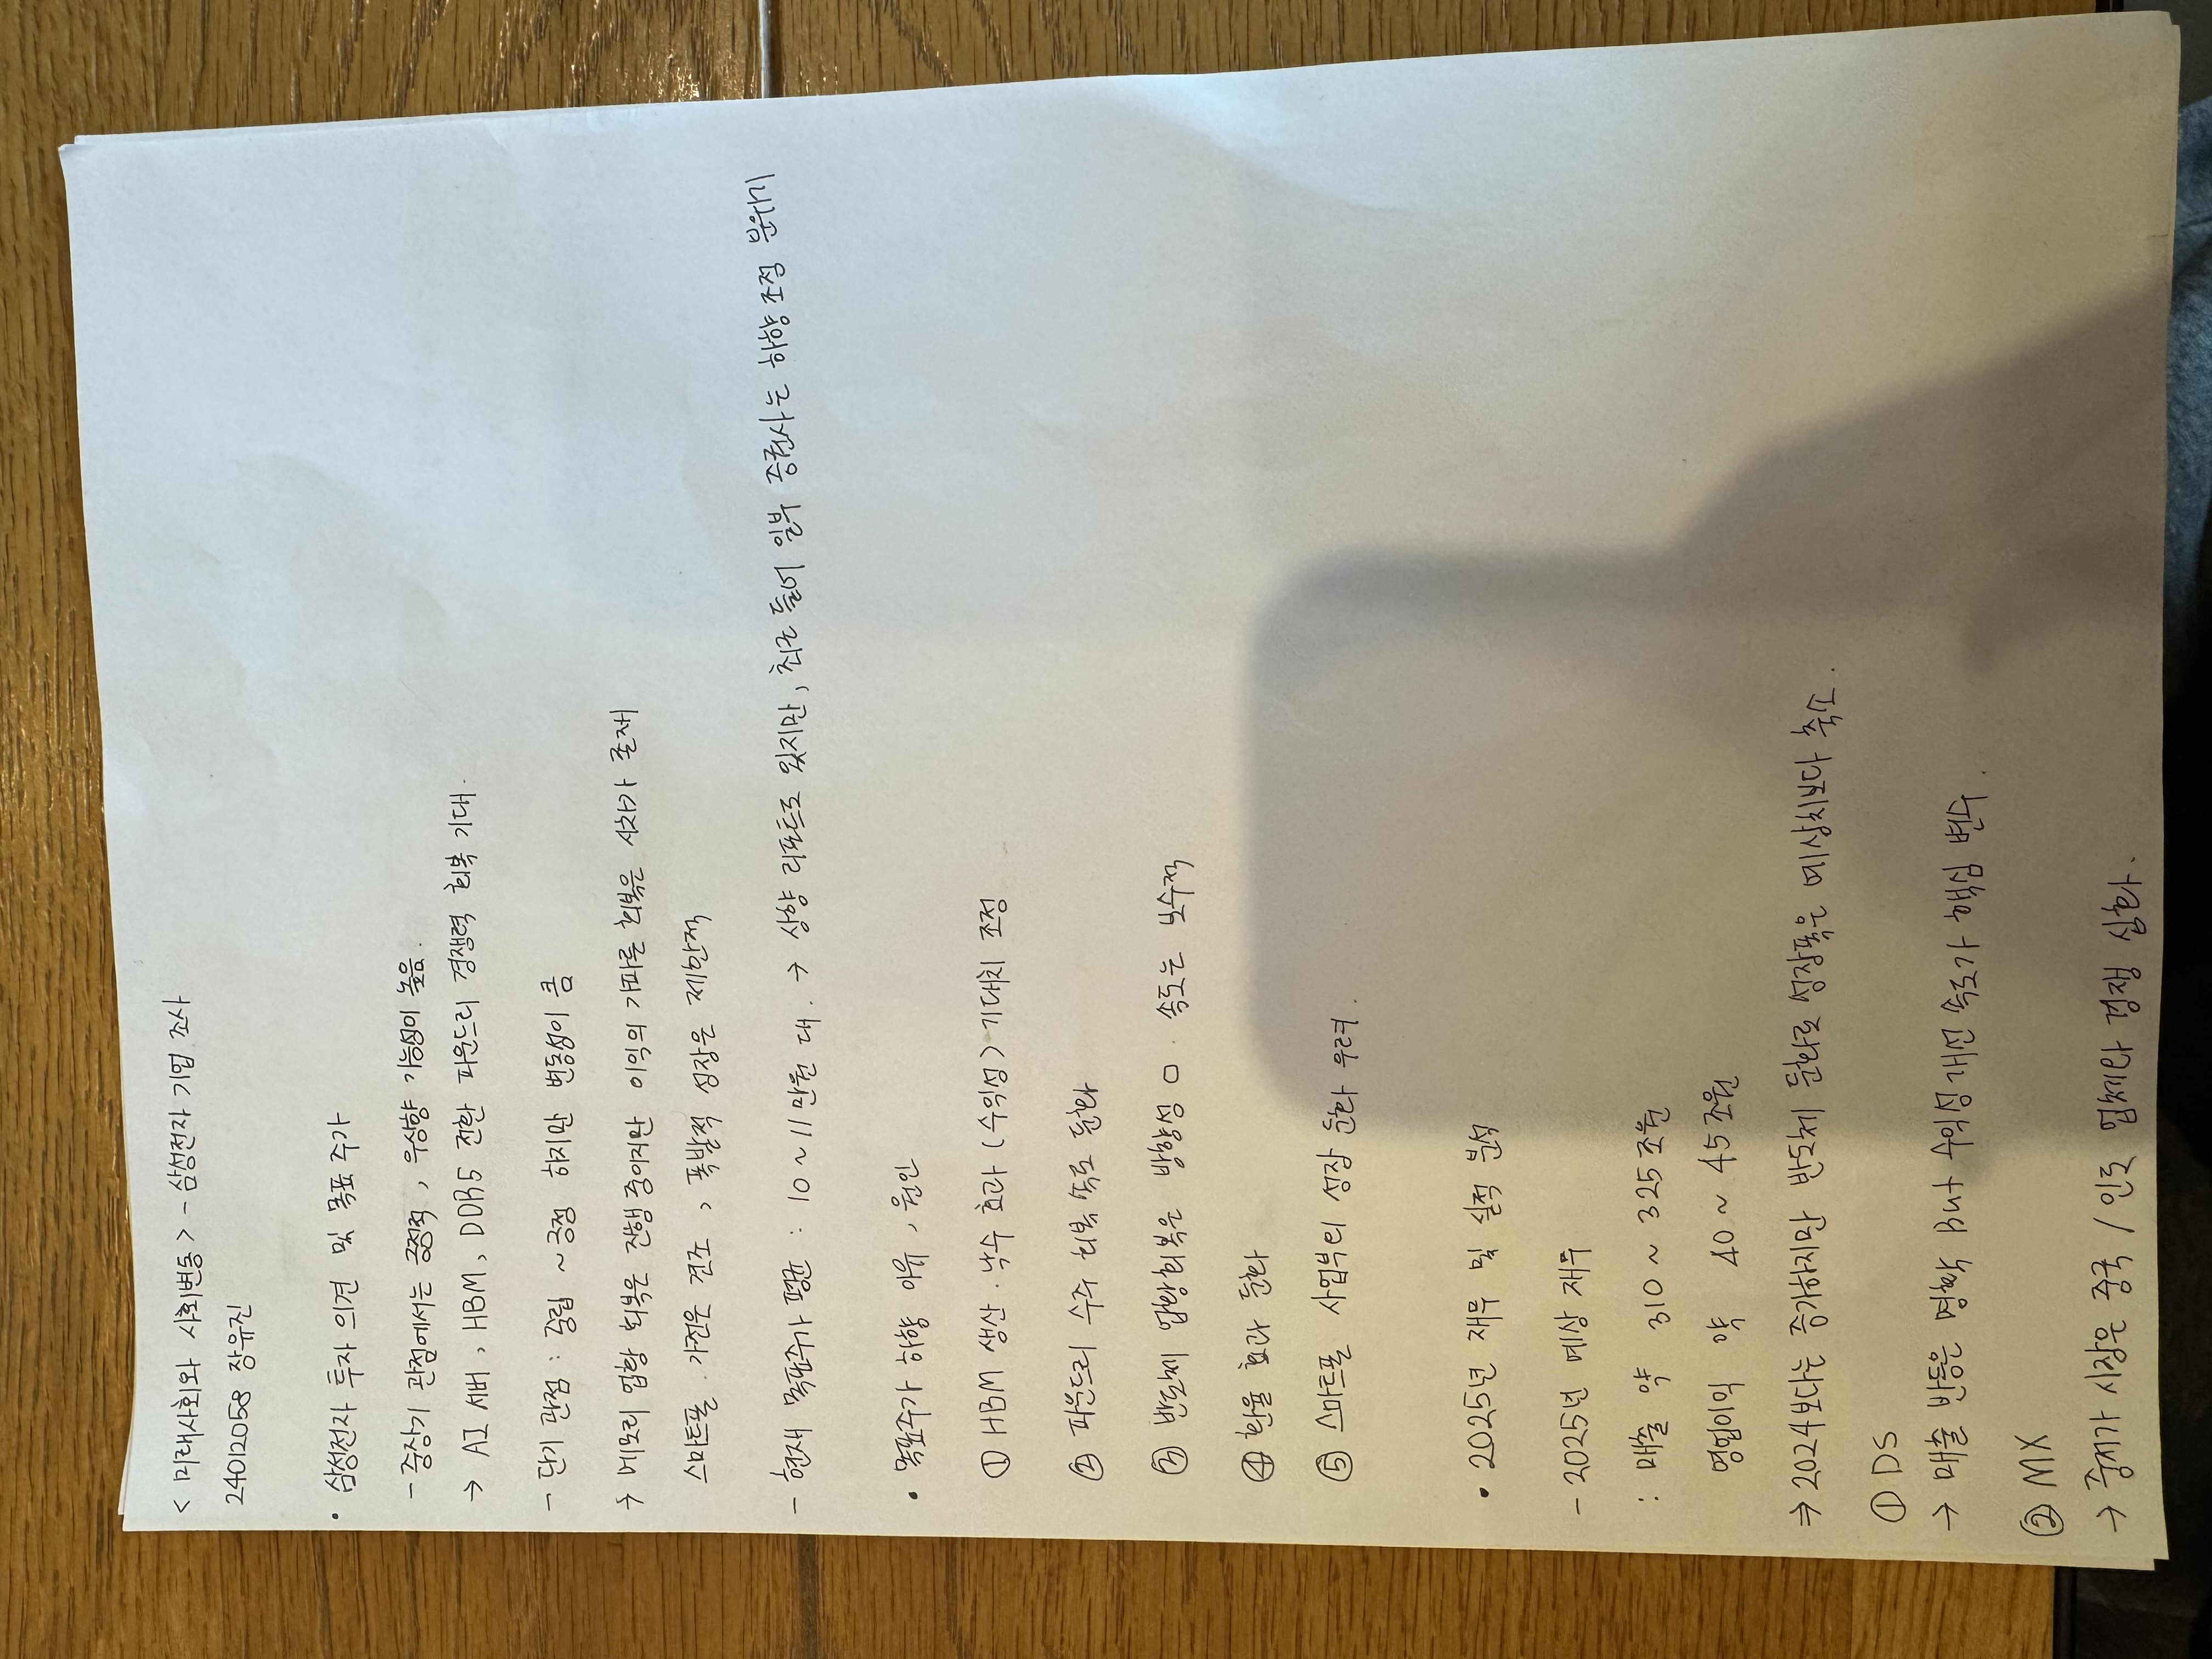 < 미래사회와 사회변동 > - 삼성전자 기업 조사
24012058 장유진
• 삼성전자 투자 의견 및 목표 주가
- 중장기 관점에서는 긍정적, 우상향 가능성이 높음.
→ AI 서버, HBM, DDR5 전환 파운드리 경쟁력 회복 기대.
- 단기 관점 : 중립 ~ 긍정 하지만 변동성이 큼
→ 메모리 업황 회복은 진행 중이지만 이익의 가파른 회복은 시차가 존재
스마트폰 · 가전은 견조, 폭발적 성장은 제한적
- 현재 목표주가 평균 : 10 ~ 11만원 대. → 상향 리포트도 있지만, 최근 들어 일부 증권사는 하향 조정 분위기
• 목표주가 하향 이유, 원인
① HBM 생산 · 낙수 효과 (수익성) 기대치 조정
② 파운드리 수주 회복 속도 둔화
③ 반도체 업황회복은 방향성 O · 속도는 보수적
④ 환율 효과 둔화
⑤ 스마트폰 사업부의 성장 둔화 우려.
• 2025년 재무 및 실적 분석
- 2025년 예상 재무
: 매출 약 310 ~ 325조원
영업이익 약 40 ~ 45조원
⇒ 2024보다는 증가하지만 반도체 둔화로 성장폭은 예상치보다 축소.
① DS
→ 매출 반등은 명확 But 수익성 개선 속도가 핵심 변수.
② MX
→ 중저가 시장은 중국 / 인도 업체와 경쟁 심화.